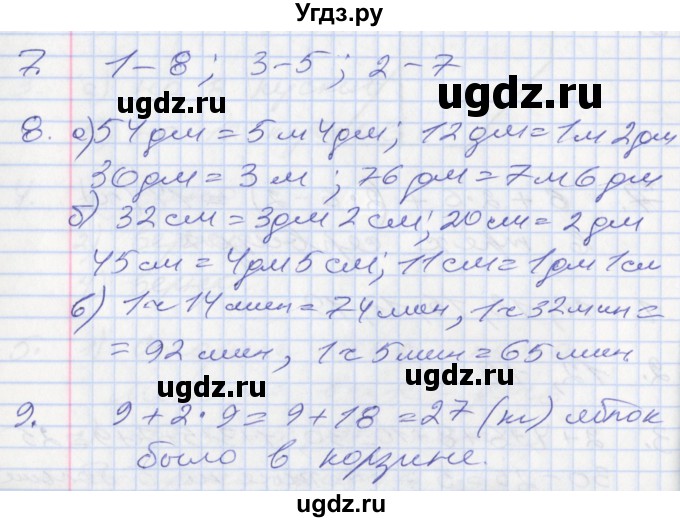 Угдз.ру
7. 1-8; 3-5; 2-7
ugdz.ru ugdz.ru
8. а) 54дм = 5м 4дм; 12дм = 1м 2дм
30дм = 3м; 76дм = 7м 6дм
ugdz.ru
б) 32см = 3дм 2см; 20см = 2дм
45см = 4дм 5см; 11см = 1дм 1см
ugdz.ru ugdz.ru
в) 1ч 14мин = 74мин, 1ч 32мин =
= 92мин, 1ч 5мин = 65мин
ugdz.ru ugdz.ru
9. 9+2·9 = 9+18 = 27 (кг) яблок
было в корзине.
ugdz.ru ugdz.ru